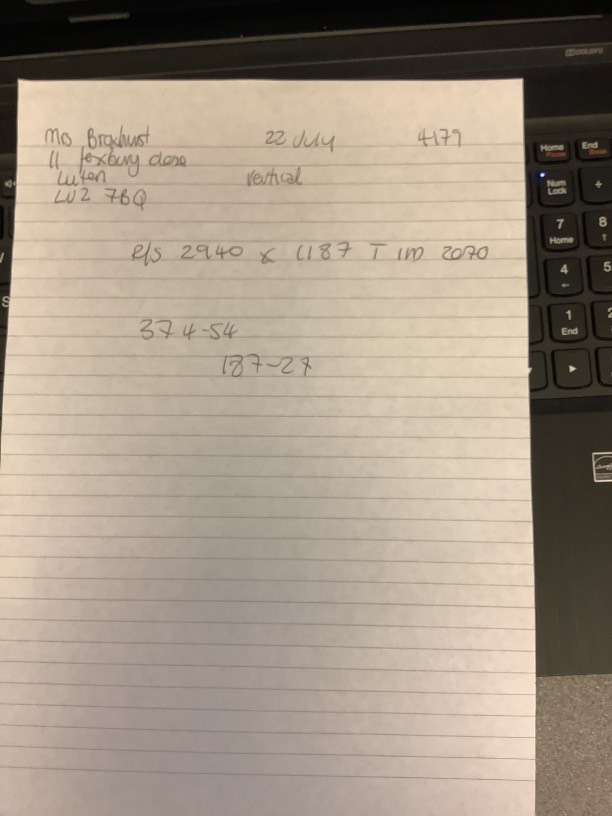 Mo 22 July 4179
11 close
Luton vertical
LU2 7BQ
R/S 2940 x 1187 T IM 2070
374-54
187-27
DOLBY
Home
Pause
End
Break
Num
Lock
÷
7
Home
8
4
5
1
End
2